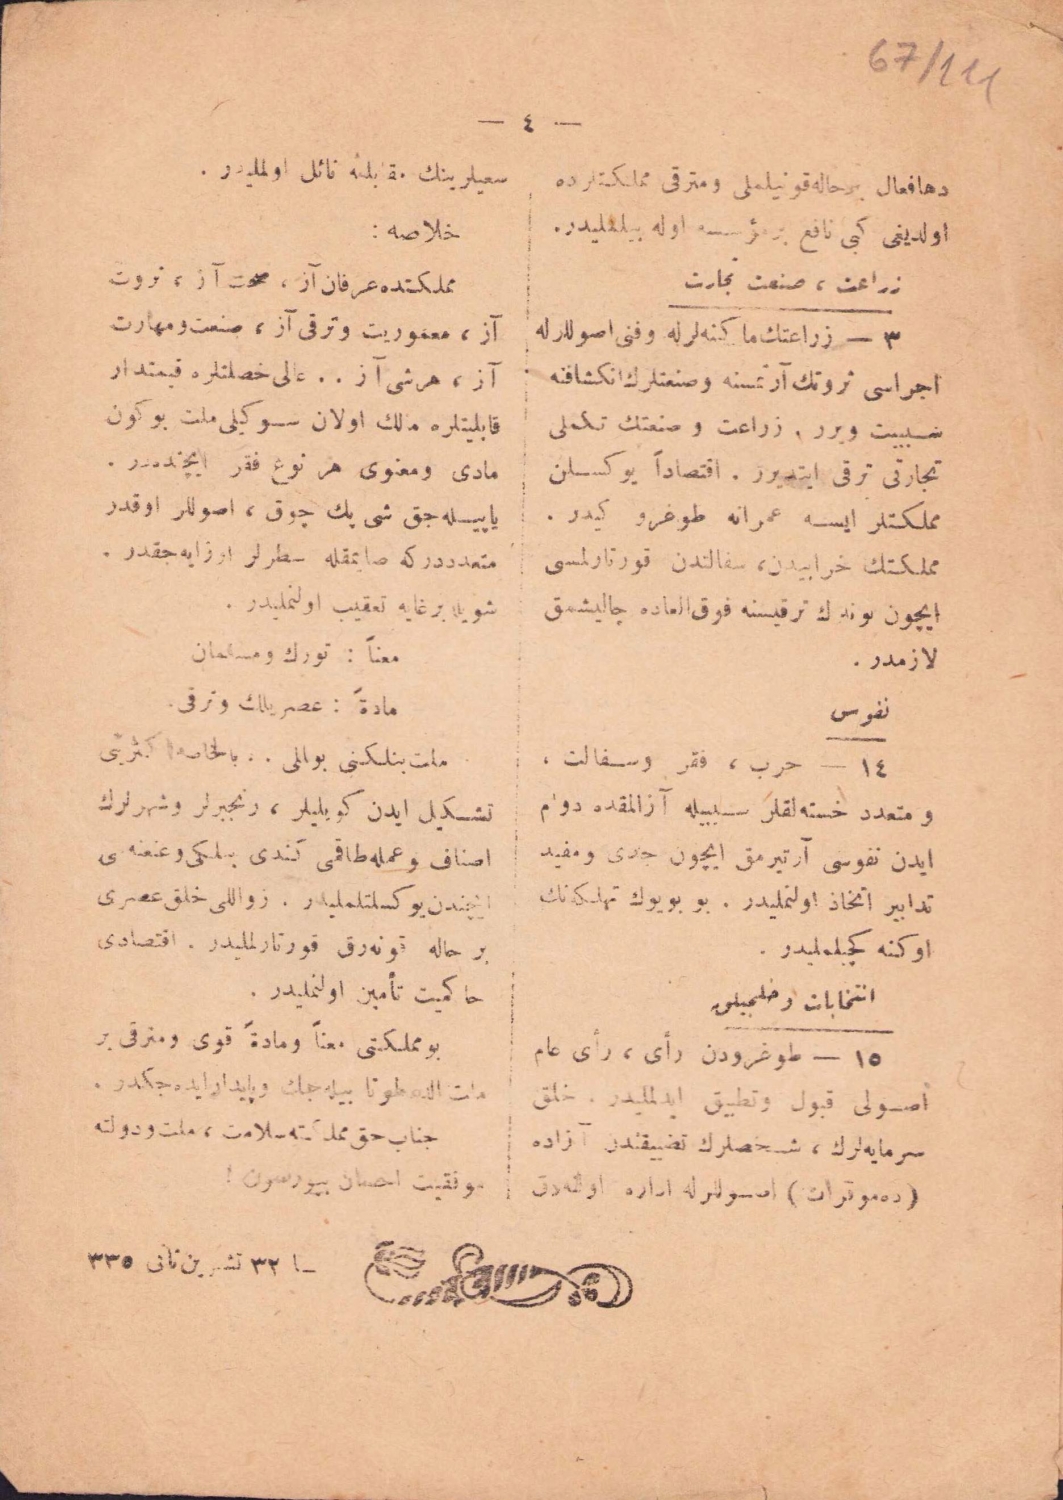 67/111
— ٤ —
دها فعال بر حاله قونیلملی ومترقی مملکتلرده
اولدیغی کبی نافع بر مؤسسه اوله بیلملیدر.
زراعت ، صنعت تجارت
٣ — زراعتك ماكنه‌لرله وفنی اصوللرله
اجراسی ثروتك آرتمسنه وصنعتلرك انكشافنه
سببیت ویرر . زراعت و صنعتك تكملی
تجارتی ترقی ایتدیرر . اقتصاداً یوكسلن
مملكتلر ایسه عمرانه طوغرو كیدر .
مملكتك خرابیدن، سفالتدن قورتارلمسی
ایچون بونلرك ترقیسنه فوق‌العاده چالیشمق
لازمدر .
نفوس
١٤ — حرب ، فقر وسفالت ،
و متعدد خسته‌لقلر سببیله آزالمقده دوام
ایدن نفوسی آرتیرمق ایچون جدی ومفید
تدابیر اتخاذ اولنملیدر . بو بویوك تهلكه‌نك
اوكنه كچیلملیدر .
انتخابات
١٥ — طوغرودن رأی ، رأی عام
أصولی قبول وتطبیق ایدلملیدر . خلق
سرمایه‌لرك ، شخصلرك تضییقندن آزاده
(ده‌موقرات) اصوللرله اداره اولنه‌رق
سعیلرینك مقابلنه نائل اولملیدر .
خلاصه :
مملكتده عرفان آز ، صحت آز ، ثروت
آز ، معموریت وترقی آز ، صنعت ومهارت
آز ، هرشی آز . . عالی خصلتلره قیمتدار
قابلیتلره مالك اولان سوكیلی ملت بوكون
مادی ومعنوی هر نوع فقر ایچنده‌در .
یاپیله‌جق شی پك چوق ، اصوللر اوقدر
متعدددركه صایمقله سطرلر اوزایه‌جقدر .
شویله برغایه تعقیب اولنملیدر .
معناً : تورك ومسلمان
مادةً : عصریلك وترقی.
ملت بنلكنی بولملی . . بالخاصه اكثریتی
تشكیل ایدن كویلیلر ، رنجبرلر وشهرلرك
اصناف وعمله طاقمی كندی بیلكی وعنعنه‌سی
ایچندن یوكسلتلملیدر . زواللی خلق عصری
بر حاله قونه‌رق قورتارلملیدر . اقتصادی
حاكمیت تأمین اولنملیدر .
بو مملكتی معناً ومادةً قوی ومترقی بر
ملت النده طوتا بیله‌جك وپایدار ایده‌جكدر .
جناب حق مملكته سلامت ، ملت ودولته
موفقیت احسان بیورسون !
٣٢ تشرین ثانی ٣٣٥